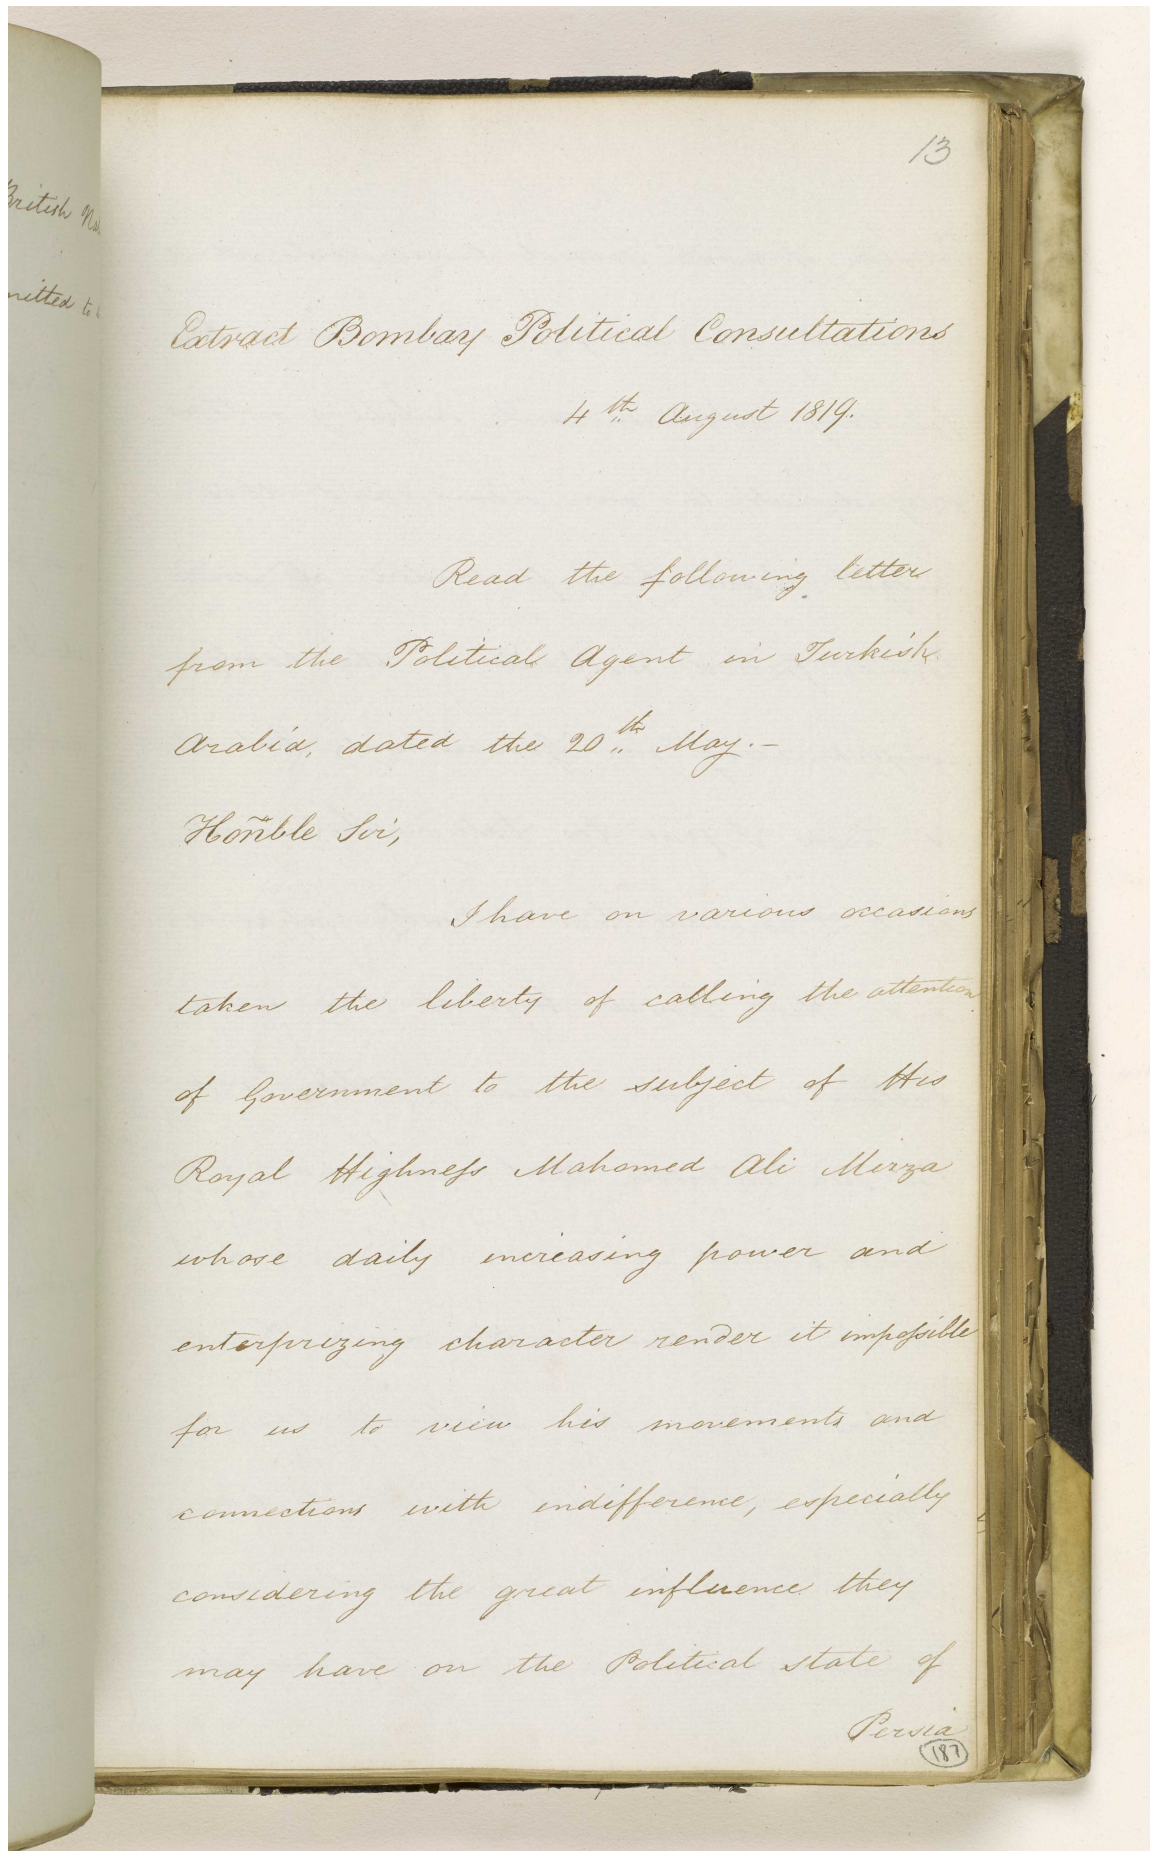 13
British
mitted to
Extract Bombay Political Consultations
4th August 1819.
Read the following letter
from the Political Agent in Turkish
Arabia, dated the 20th May.-
Hon~ble Sir,
I have on various occasions
taken the liberty of calling the attention
of Government to the subject of His
Royal Highneſs Mahomed Ali Mirza
whose daily increasing power and
enterprizing character render it impoſsible
for us to view his movements and
connections with indifference, especially
considering the great influence they
may have on the Political state of
Persia
187